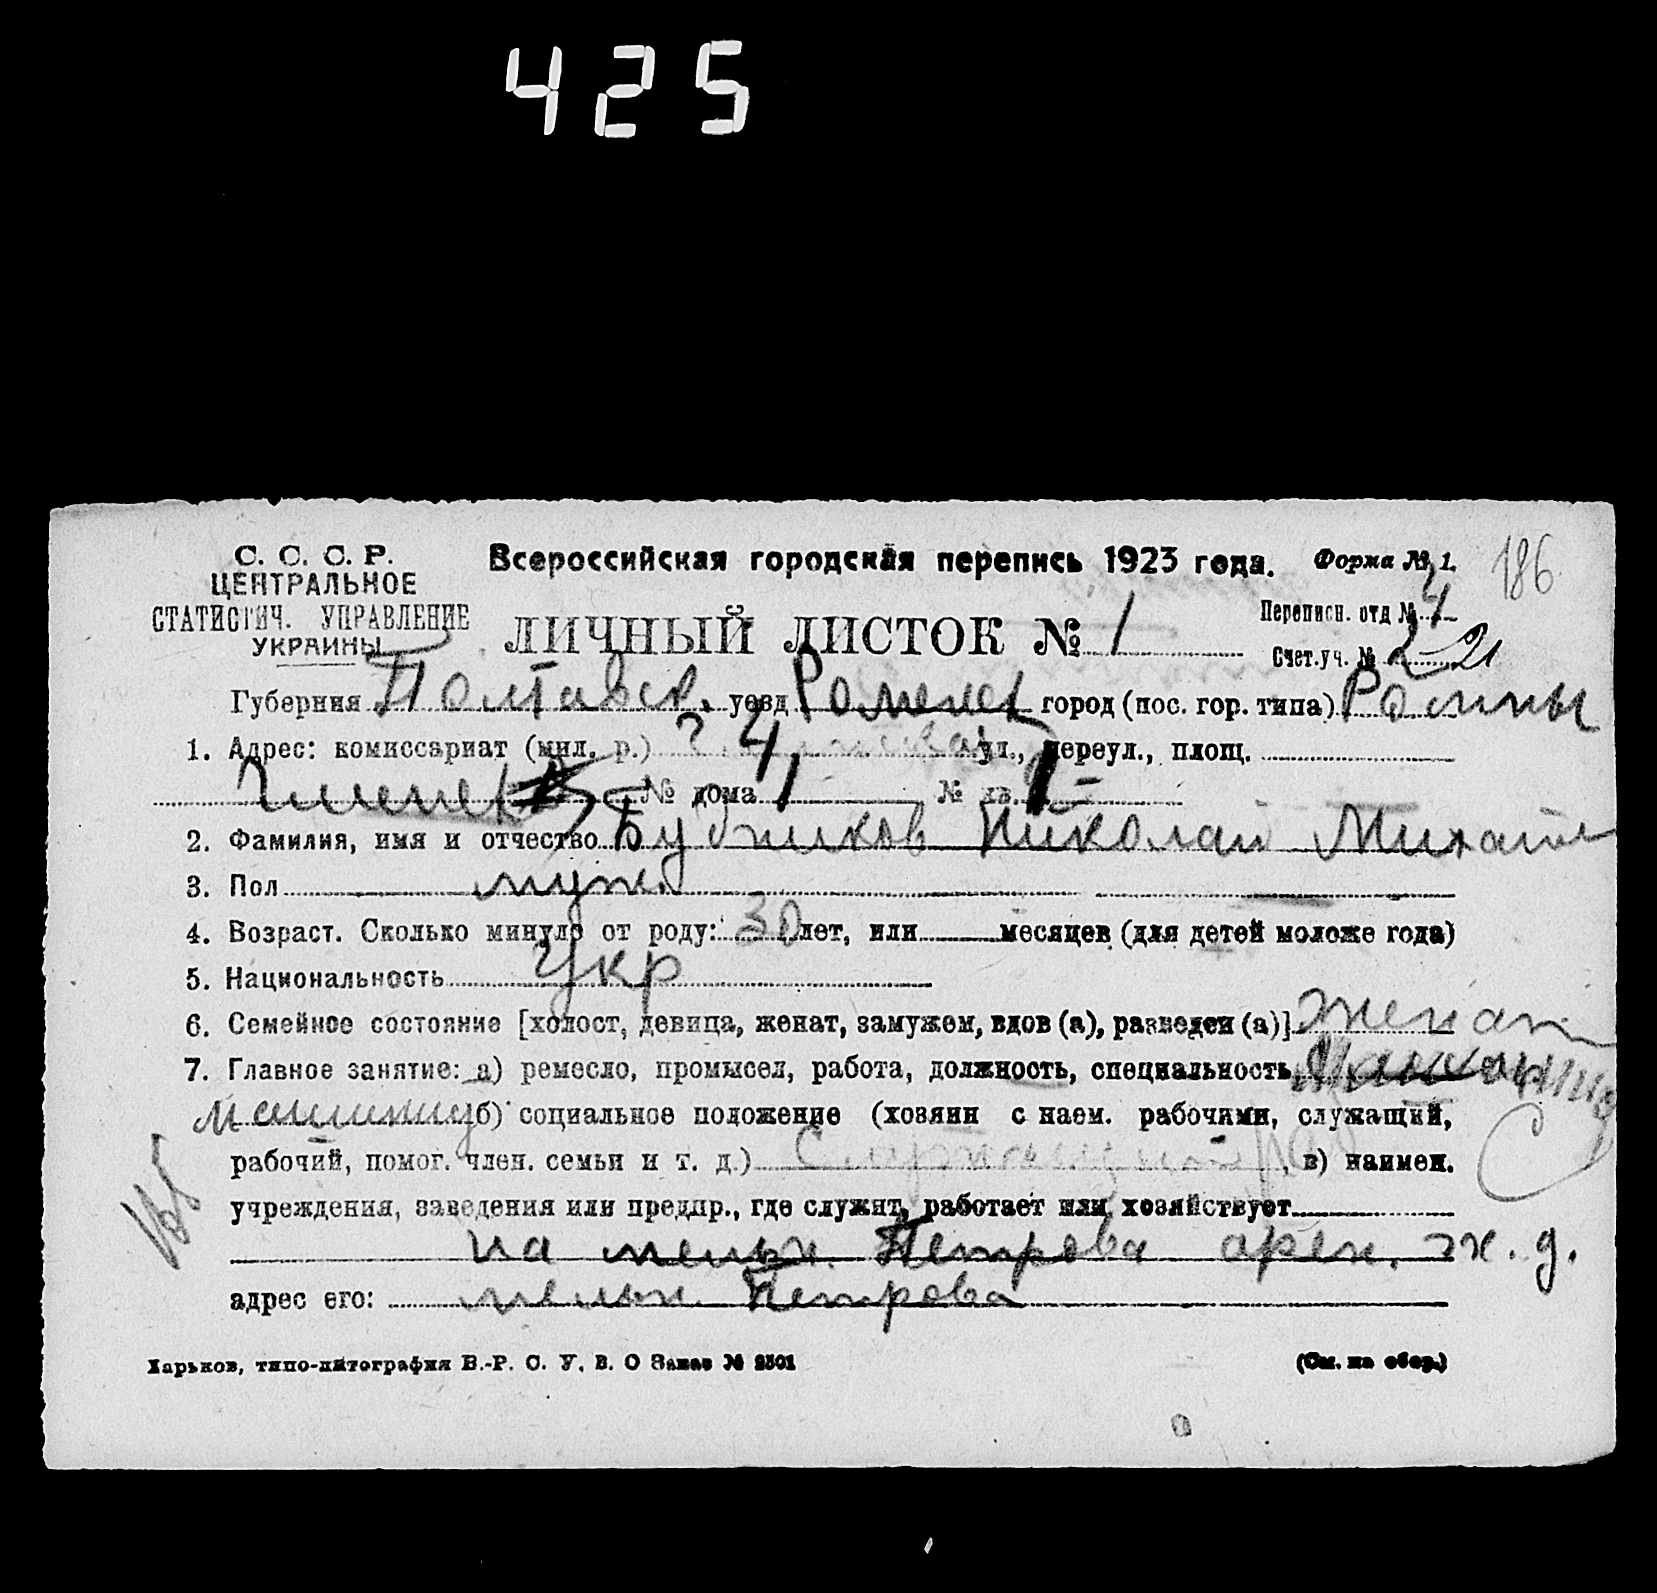 425
С. С. С. Р. Всероссийская городская перепись 1923 года. Форма № 1. 186
ЦЕНТРАЛЬНОЕ
СТАТИСТИЧ. УПРАВЛЕНИЕ
УКРАИНЫ
ЛИЧНЫЙ ЛИСТОК № 1
Переписн. отд № 4
Счет.уч. № 2 21
Губерния Полтавск. уезд Роменск город (пос. гор. типа) Ромны
1. Адрес: комиссариат (мил. р.) ул., переул., площ.
№ дома 1 № кв.
2. Фамилия, имя и отчество Бубников Николай Михайл
3. Пол муж.
4. Возраст. Сколько минуло от роду: 30 лет, или месяцев (для детей моложе года)
5. Национальность Укр
6. Семейное состояние [холост, девица, женат, замужем, вдов (а), разведен (а)] женат
7. Главное занятие: а) ремесло, промысел, работа, должность, специальность
б) социальное положение (хозяин с наем. рабочими, служащий,
рабочий, помог. член. семьи и т. д.) в) наимен.
учреждения, заведения или предпр., где служит, работает или хозяйствует
на мельн. Петрова арен. ж. д.
адрес его: мельн. Петрова
Харьков, типо-литография В.-Р. С. У. В. О Заказ № 2301 (См. на обор.)